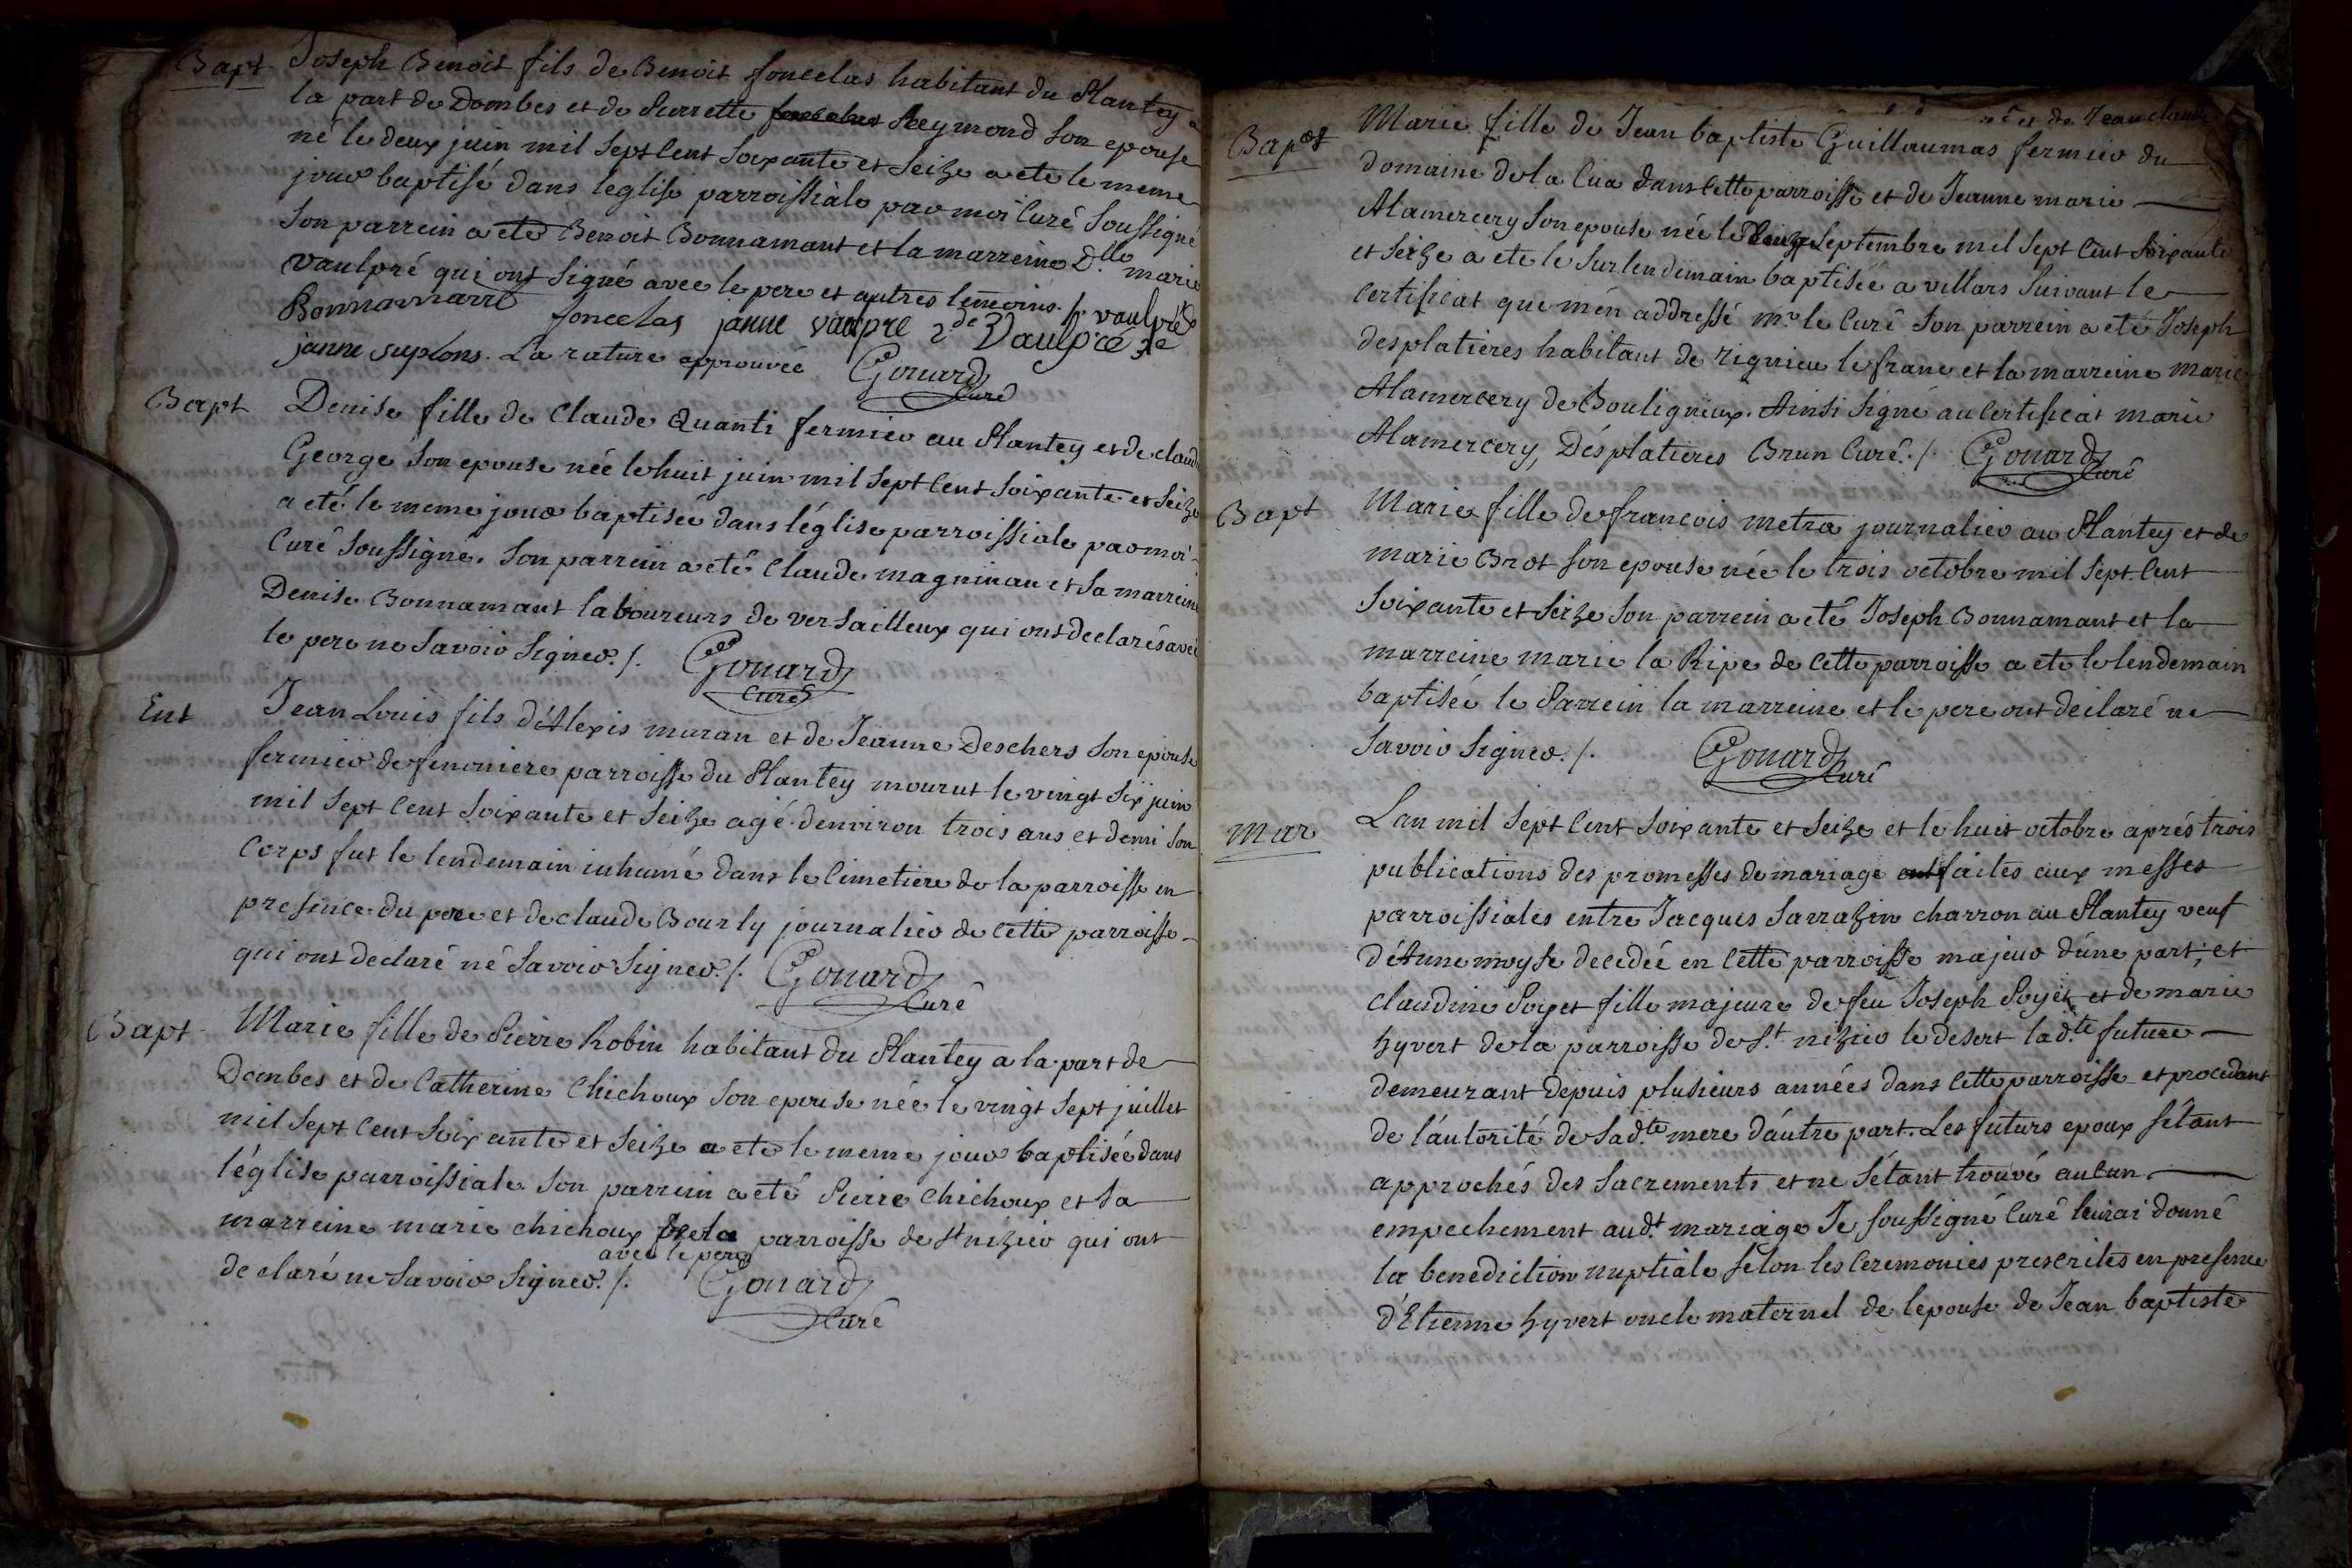 Bapt Joseph Benoit fils de Benoit foncelas habitant du Plantey a
la part de Dombes et de Pierrette foncelas Reymond son epouse
né le deux juin mil sept cent soixante et seize a ete le meme
jour baptisé dans leglise parroissiale par moi Curé soussigné
son parrein a ete Benoit Bonnamant et la marreine D.lle marie
vaulpré qui ont signé avec le pere et autres temoins. /. vaulpré
Bonnamant foncelas janne vaulpre 2de Vaulpré 3e
janne suplons. La rature approuvée Gonard Curé
Bapt Denise fille de Claude Quanti fermier au Plantey et de claud
George son epouse née le huit juin mil sept cent soixante et seize
a eté le meme jour baptisée dans léglise parroissiale par moi
Curé soussigné. son parrein a eté Claude magninan et sa marreine
Denise Bonnamant laboureurs de versailleux qui ont declaré avec
le pere ne savoir signer. /. Gonard Curé
Ent Jean Louis fils d'Alexis muran et de Jeanne Deschers son epouse
fermier de fenoniere parroisse du Plantey mourut le vingt six juin
mil sept cent soixante et seize agé denviron trois ans et demi son
Corps fut le lendemain inhumé dans le Cimetiere de la parroisse en
presence du pere et de Claude Bourly journalier de cette parroisse
qui ont declaré né savoir signer. /. Gonard Curé
Bapt Marie fille de Pierre Robin habitant du Plantey a la part de
Dombes et de Catherine Chichoux son epouse née le vingt sept juillet
mil sept cent soixante et seize a ete le meme jour baptisée dans
l'église parroissiale. son parrein a eté Pierre Chichoux et sa
marreine marie chichoux de la parroisse de st nizier qui ont
avec le pere
declaré ne savoir signer. /. Gonard Curé
et de Jean claude
Bapt Marie fille de Jean baptiste Guillaumas fermier du
domaine de la Cua dans cette parroisse et de Jeanne marie
Alamercery son epouse née le septembre mil sept cent soixante
et seize a ete le surlendemain baptisée a villars suivant le
Certificat que m'en addressé mr. le Curé son parrein a eté Joseph
desplatieres habitant de rignieu le franc et la marreine marie
Alamercery de Bouligneux. Ainsi signé au certificat marie
Alamercery, Désplatieres Brun Curé. /. Gonard Curé
Bapt Marie fille de francois metra journalier au Plantey et de
marie Brot son epouse née le trois octobre mil sept cent
soixante et seize son parrein a eté Joseph Bonnamant et la
marreine marie la Ripe de cette parroisse a ete le lendemain
baptisée le Parrein la marreine et le pere ont declaré ne
savoir signer. /. Gonard Curé
Mar Lan mil sept cent soixante et seize et le huit octobre aprés trois
publications des promesses de mariage ont faites aux messes
parroissiales entre Jacques Sarrazin charron au Plantey veuf
d'Anne moyse decedée en cette parroisse majeur d'une part; et
claudine Poyet fille majeure de feu Joseph Poyet et de marie
hyvert de la parroisse de St. nizier le desert lad.te future
demeurant depuis plusieurs années dans cette parroisse et procedant
de l'autorité de sad.te mere d'autre part. Les futurs epoux s'étant
approchés des sacrements et ne s'étant trouvé aucun
empechement aud.t mariage Je soussigné Curé leur ai donné
la benediction nuptiale selon les Ceremonies prescrites en presence
d'Etienne hyvert oncle maternel de lepouse de Jean baptiste